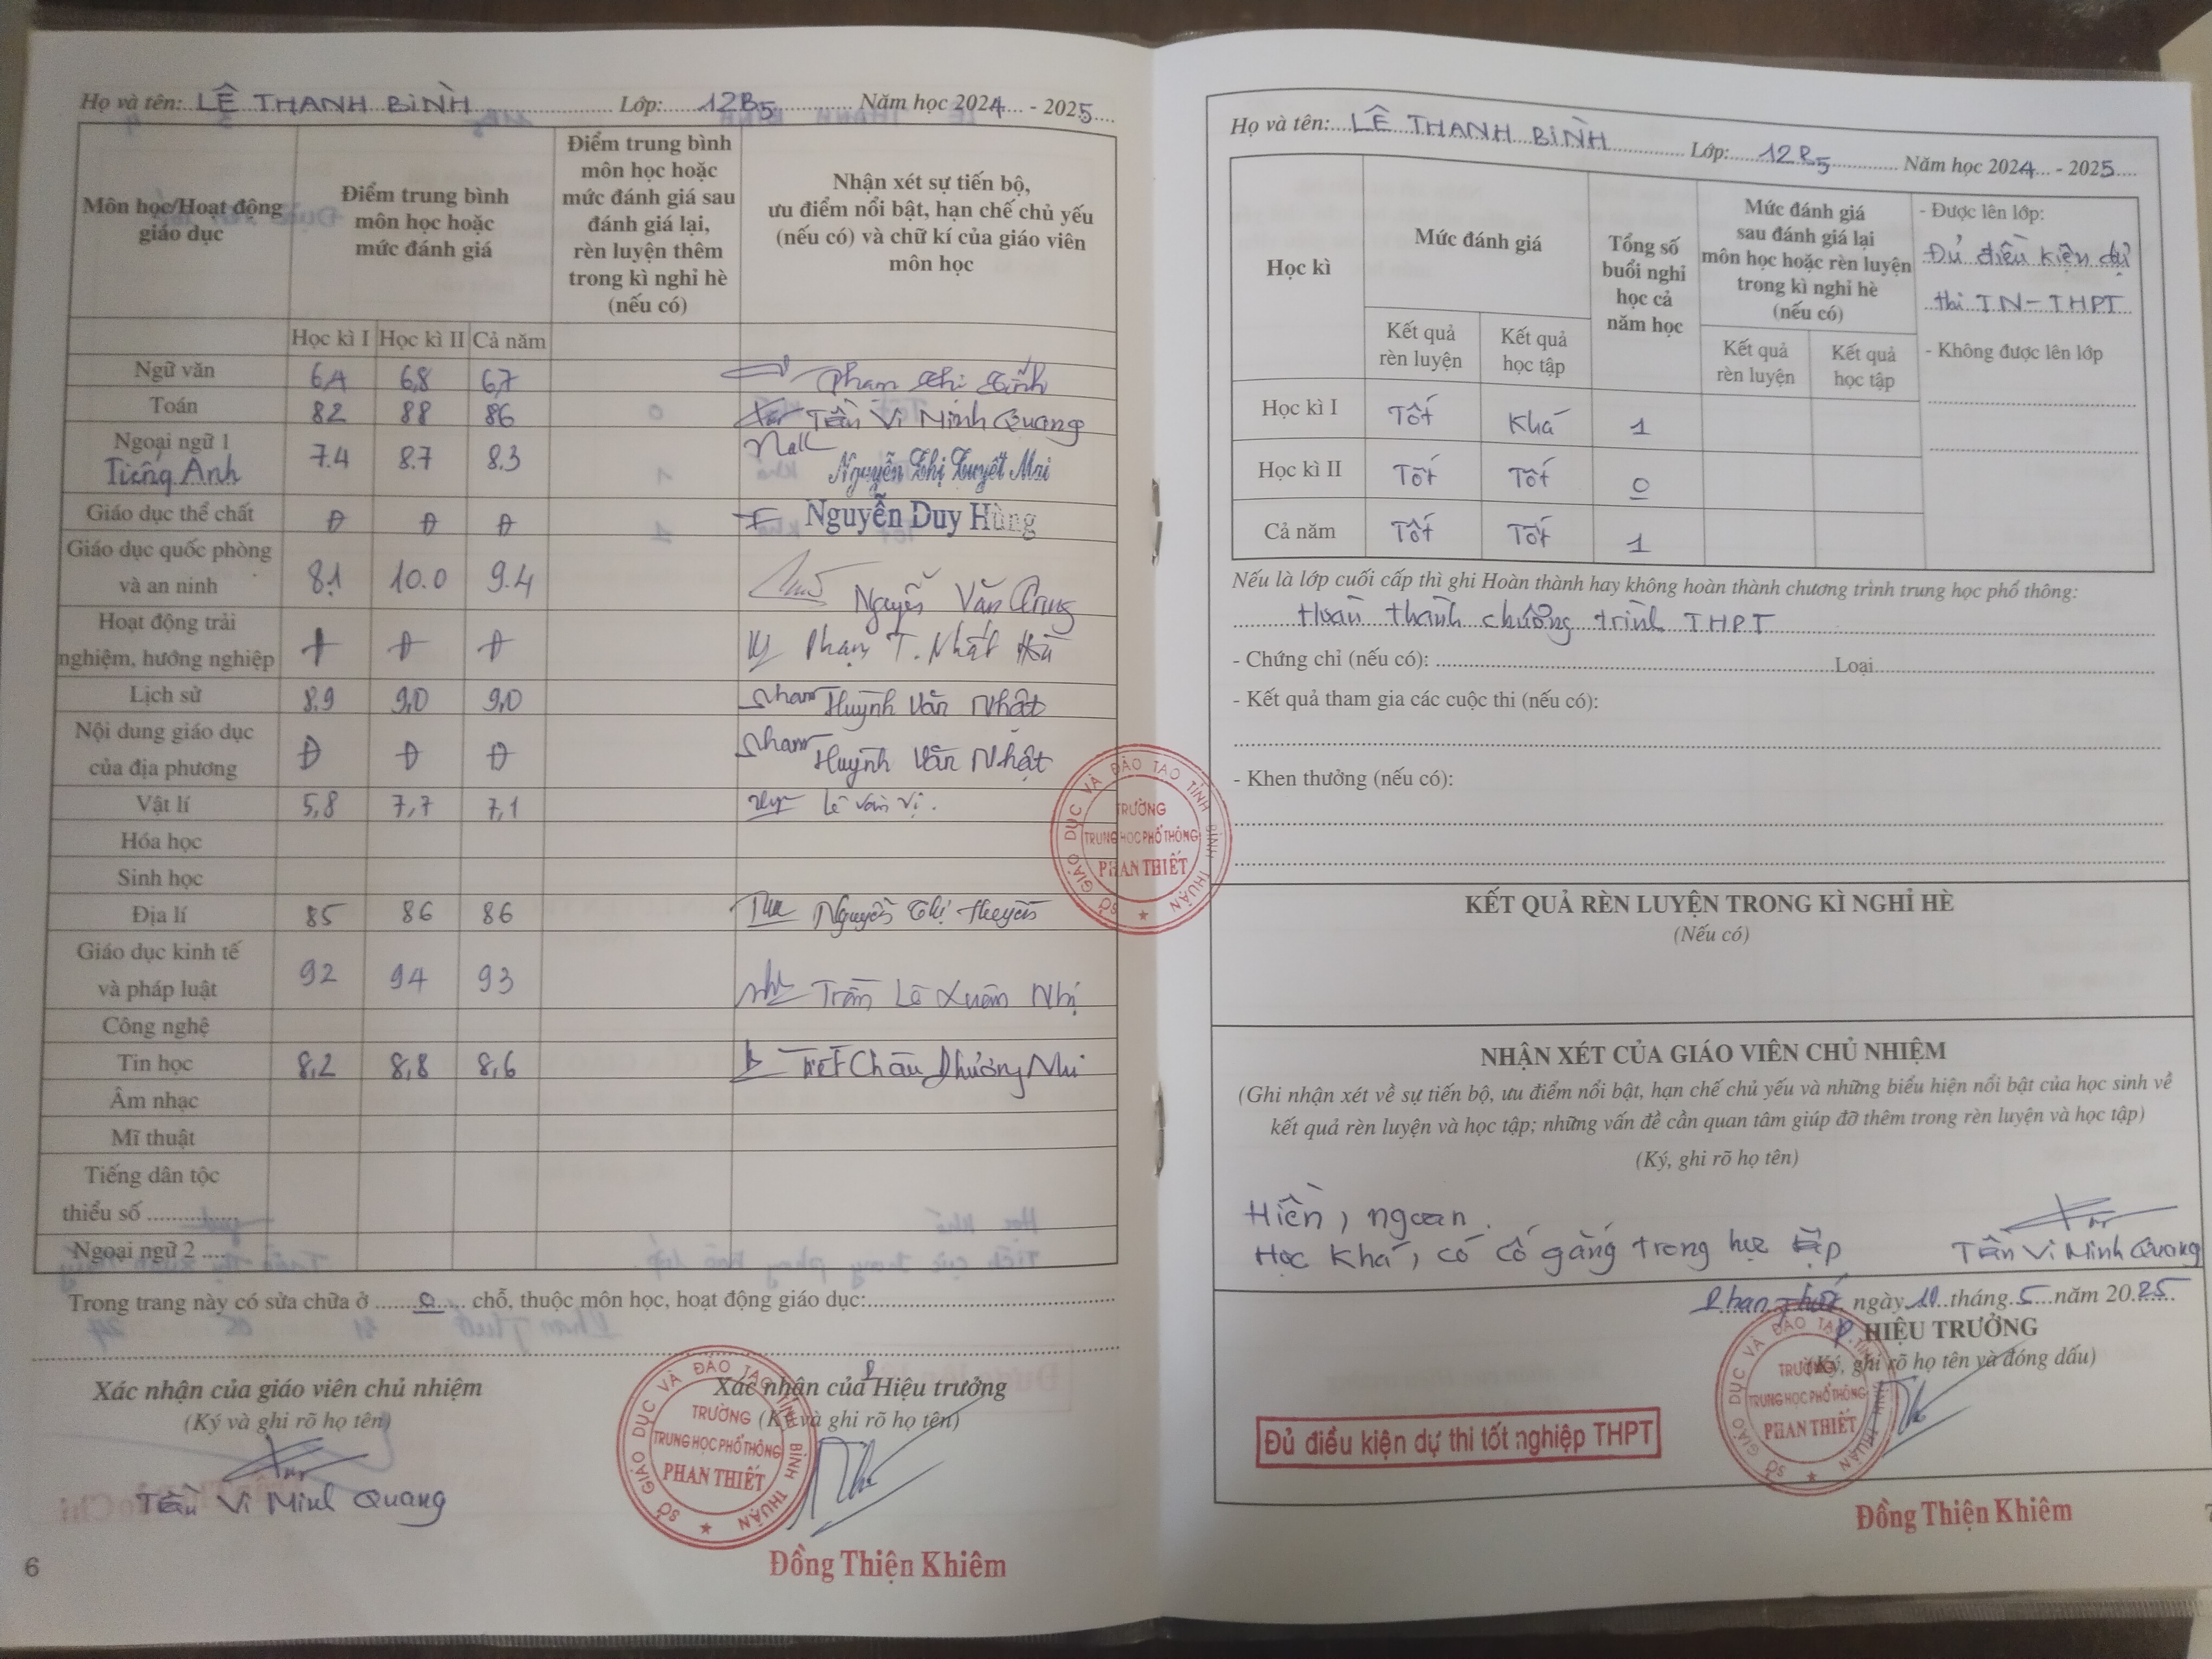 Họ và tên: LÊ THANH BÌNH Lớp: 12B5 Năm học 2024 - 2025
Môn học/Hoạt động giáo dục
Điểm trung bình môn học hoặc mức đánh giá
Điểm trung bình môn học hoặc mức đánh giá sau đánh giá lại, rèn luyện thêm trong kì nghỉ hè (nếu có)
Nhận xét sự tiến bộ, ưu điểm nổi bật, hạn chế chủ yếu (nếu có) và chữ kí của giáo viên môn học
Học kì I Học kì II Cả năm
Ngữ văn 6,4 6,8 6,7
Toán 82 88 86 Trần Vi Minh Quang
Ngoại ngữ 1
Tiếng Anh 7.4 8.7 8.3 Nguyễn Thị Tuyết Mai
Giáo dục thể chất Đ Đ Đ Nguyễn Duy Hùng
Giáo dục quốc phòng
và an ninh 8.1 10.0 9.4 Nguyễn Văn
Hoạt động trải
nghiệm, hướng nghiệp Đ Đ Đ Phạm T. Nhất
Lịch sử 8.9 9,0 9,0 Huỳnh Văn Nhật
Nội dung giáo dục
của địa phương Đ Đ Đ Huỳnh Văn Nhật
Vật lí 5,8 7,7 7,1 Lê Văn Vị.
Hóa học
Sinh học
Địa lí 85 86 86 Nguyễn Thị
Giáo dục kinh tế
và pháp luật 92 94 93 Trần Lê Xuân Nhị
Công nghệ
Tin học 8,2 8,8 8,6 Châu Phương Nhi
Âm nhạc
Mĩ thuật
Tiếng dân tộc
thiểu số
Ngoại ngữ 2
Trong trang này có sửa chữa ở 0 chỗ, thuộc môn học, hoạt động giáo dục:
Xác nhận của giáo viên chủ nhiệm
(Ký và ghi rõ họ tên)
Trần Vi Minh Quang
Xác nhận của Hiệu trưởng
(Ký và ghi rõ họ tên)
SỞ GIÁO DỤC VÀ ĐÀO TẠO TỈNH BÌNH THUẬN
TRƯỜNG
TRUNG HỌC PHỔ THÔNG
PHAN THIẾT
Đồng Thiện Khiêm
6
SỞ GIÁO DỤC VÀ ĐÀO TẠO TỈNH BÌNH THUẬN
TRƯỜNG
TRUNG HỌC PHỔ THÔNG
PHAN THIẾT
Họ và tên: LÊ THANH BÌNH Lớp: 12B5 Năm học 2024 - 2025
Học kì
Mức đánh giá
Tổng số buổi nghỉ học cả năm học
Mức đánh giá sau đánh giá lại môn học hoặc rèn luyện trong kì nghỉ hè (nếu có)
- Được lên lớp:
Đủ điều kiện dự
thi TN-THPT
- Không được lên lớp
Kết quả rèn luyện Kết quả học tập Kết quả rèn luyện Kết quả học tập
Học kì I Tốt Khá 1
Học kì II Tốt Tốt 0
Cả năm Tốt Tốt 1
Nếu là lớp cuối cấp thì ghi Hoàn thành hay không hoàn thành chương trình trung học phổ thông:
Hoàn thành chương trình THPT
- Chứng chỉ (nếu có): Loại
- Kết quả tham gia các cuộc thi (nếu có):
- Khen thưởng (nếu có):
KẾT QUẢ RÈN LUYỆN TRONG KÌ NGHỈ HÈ
(Nếu có)
NHẬN XÉT CỦA GIÁO VIÊN CHỦ NHIỆM
(Ghi nhận xét về sự tiến bộ, ưu điểm nổi bật, hạn chế chủ yếu và những biểu hiện nổi bật của học sinh về
kết quả rèn luyện và học tập; những vấn đề cần quan tâm giúp đỡ thêm trong rèn luyện và học tập)
(Ký, ghi rõ họ tên)
Hiền, ngoan.
Học khá, có cố gắng trong học tập
Trần Vi Minh Quang
Phan Thiết, ngày 10 tháng 5 năm 2025
HIỆU TRƯỞNG
(Ký, ghi rõ họ tên và đóng dấu)
SỞ GIÁO DỤC VÀ ĐÀO TẠO TỈNH BÌNH THUẬN
TRƯỜNG
TRUNG HỌC PHỔ THÔNG
PHAN THIẾT
Đủ điều kiện dự thi tốt nghiệp THPT
Đồng Thiện Khiêm